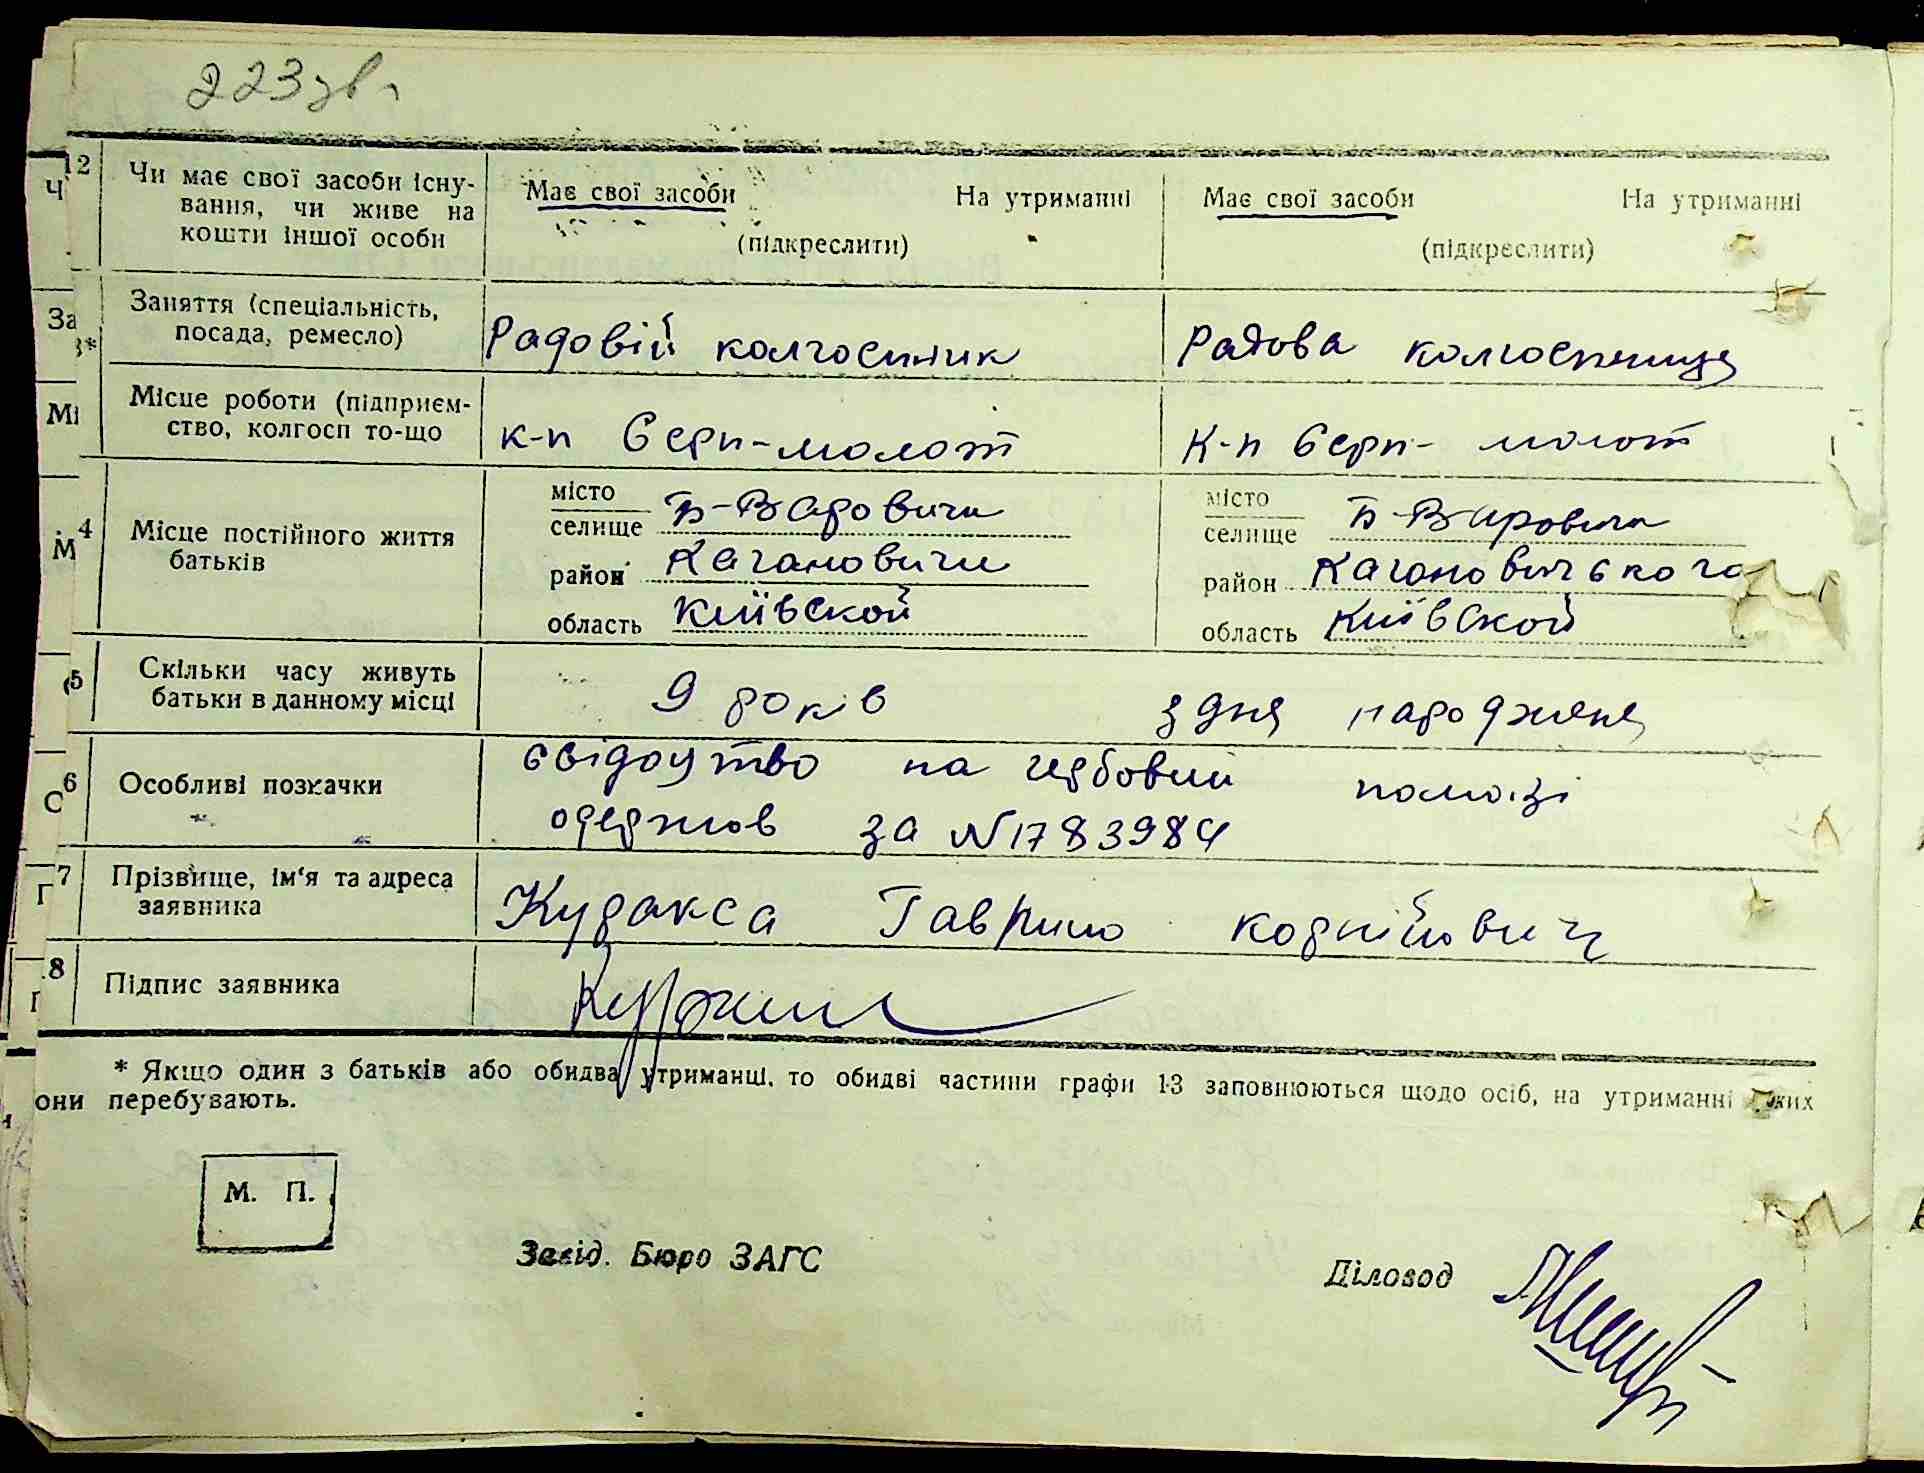 223 зв.
12 Чи має свої засоби існу- Має свої засоби На утриманні Має свої засоби На утриманні
вання, чи живе на
кошти іншої особи (підкреслити) (підкреслити)
Заняття (спеціальність,
посада, ремесло) Радовій колгоспник Радова колгоспница
3*
Місце роботи (підприєм-
ство, колгосп то-що к-п Серп-молот к-п Серп-молот
4 Місце постійного життя
батьків
місто
селище Б-Варовичи
район Кагановичи
область Київской
місто
селище Б-Варовичи
район Кагановичского
область Київской
5 Скільки часу живуть
батьки в данному місці 9 років з дня народженя
6 Особливі позначки свідоцтво на гербовий помазі
одержов за №1783984
7 Прізвище, ім'я та адреса
заявника Куракса Гаврило корнійович
8 Підпис заявника
* Якщо один з батьків або обидва утриманці, то обидві частини графи 13 заповнюються щодо осіб, на утриманні яких
они перебувають.
М. П.
Завід. Бюро ЗАГС
Діловод